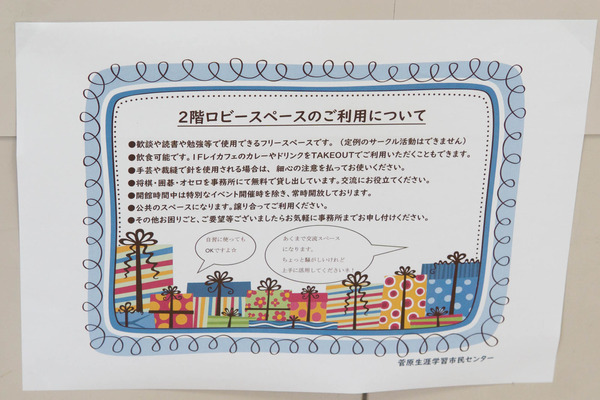 2階ロビースペースのご利用について
●歓談や読書や勉強等で使用できるフリースペースです。（定例のサークル活動はできません）
●飲食可能です。1FレイカフェのカレーやドリンクをTAKEOUTでご利用いただくこともできます。
●手芸や裁縫で針を使用される場合は、細心の注意を払ってお使いください。
●将棋・囲碁・オセロを事務所にて無料で貸し出しています。交流にお役立てください。
●開館時間中は特別なイベント開催時を除き、常時開放しております。
●公共のスペースになります。譲り合ってご利用ください。
●その他お困りごと、ご要望等ございましたらお気軽に事務所までお申し付けください。
自習に使っても
OKですよ☆
あくまで交流スペース
になります。
ちょっと騒がしいけれど
上手に活用してくださいネ！
菅原生涯学習市民センター